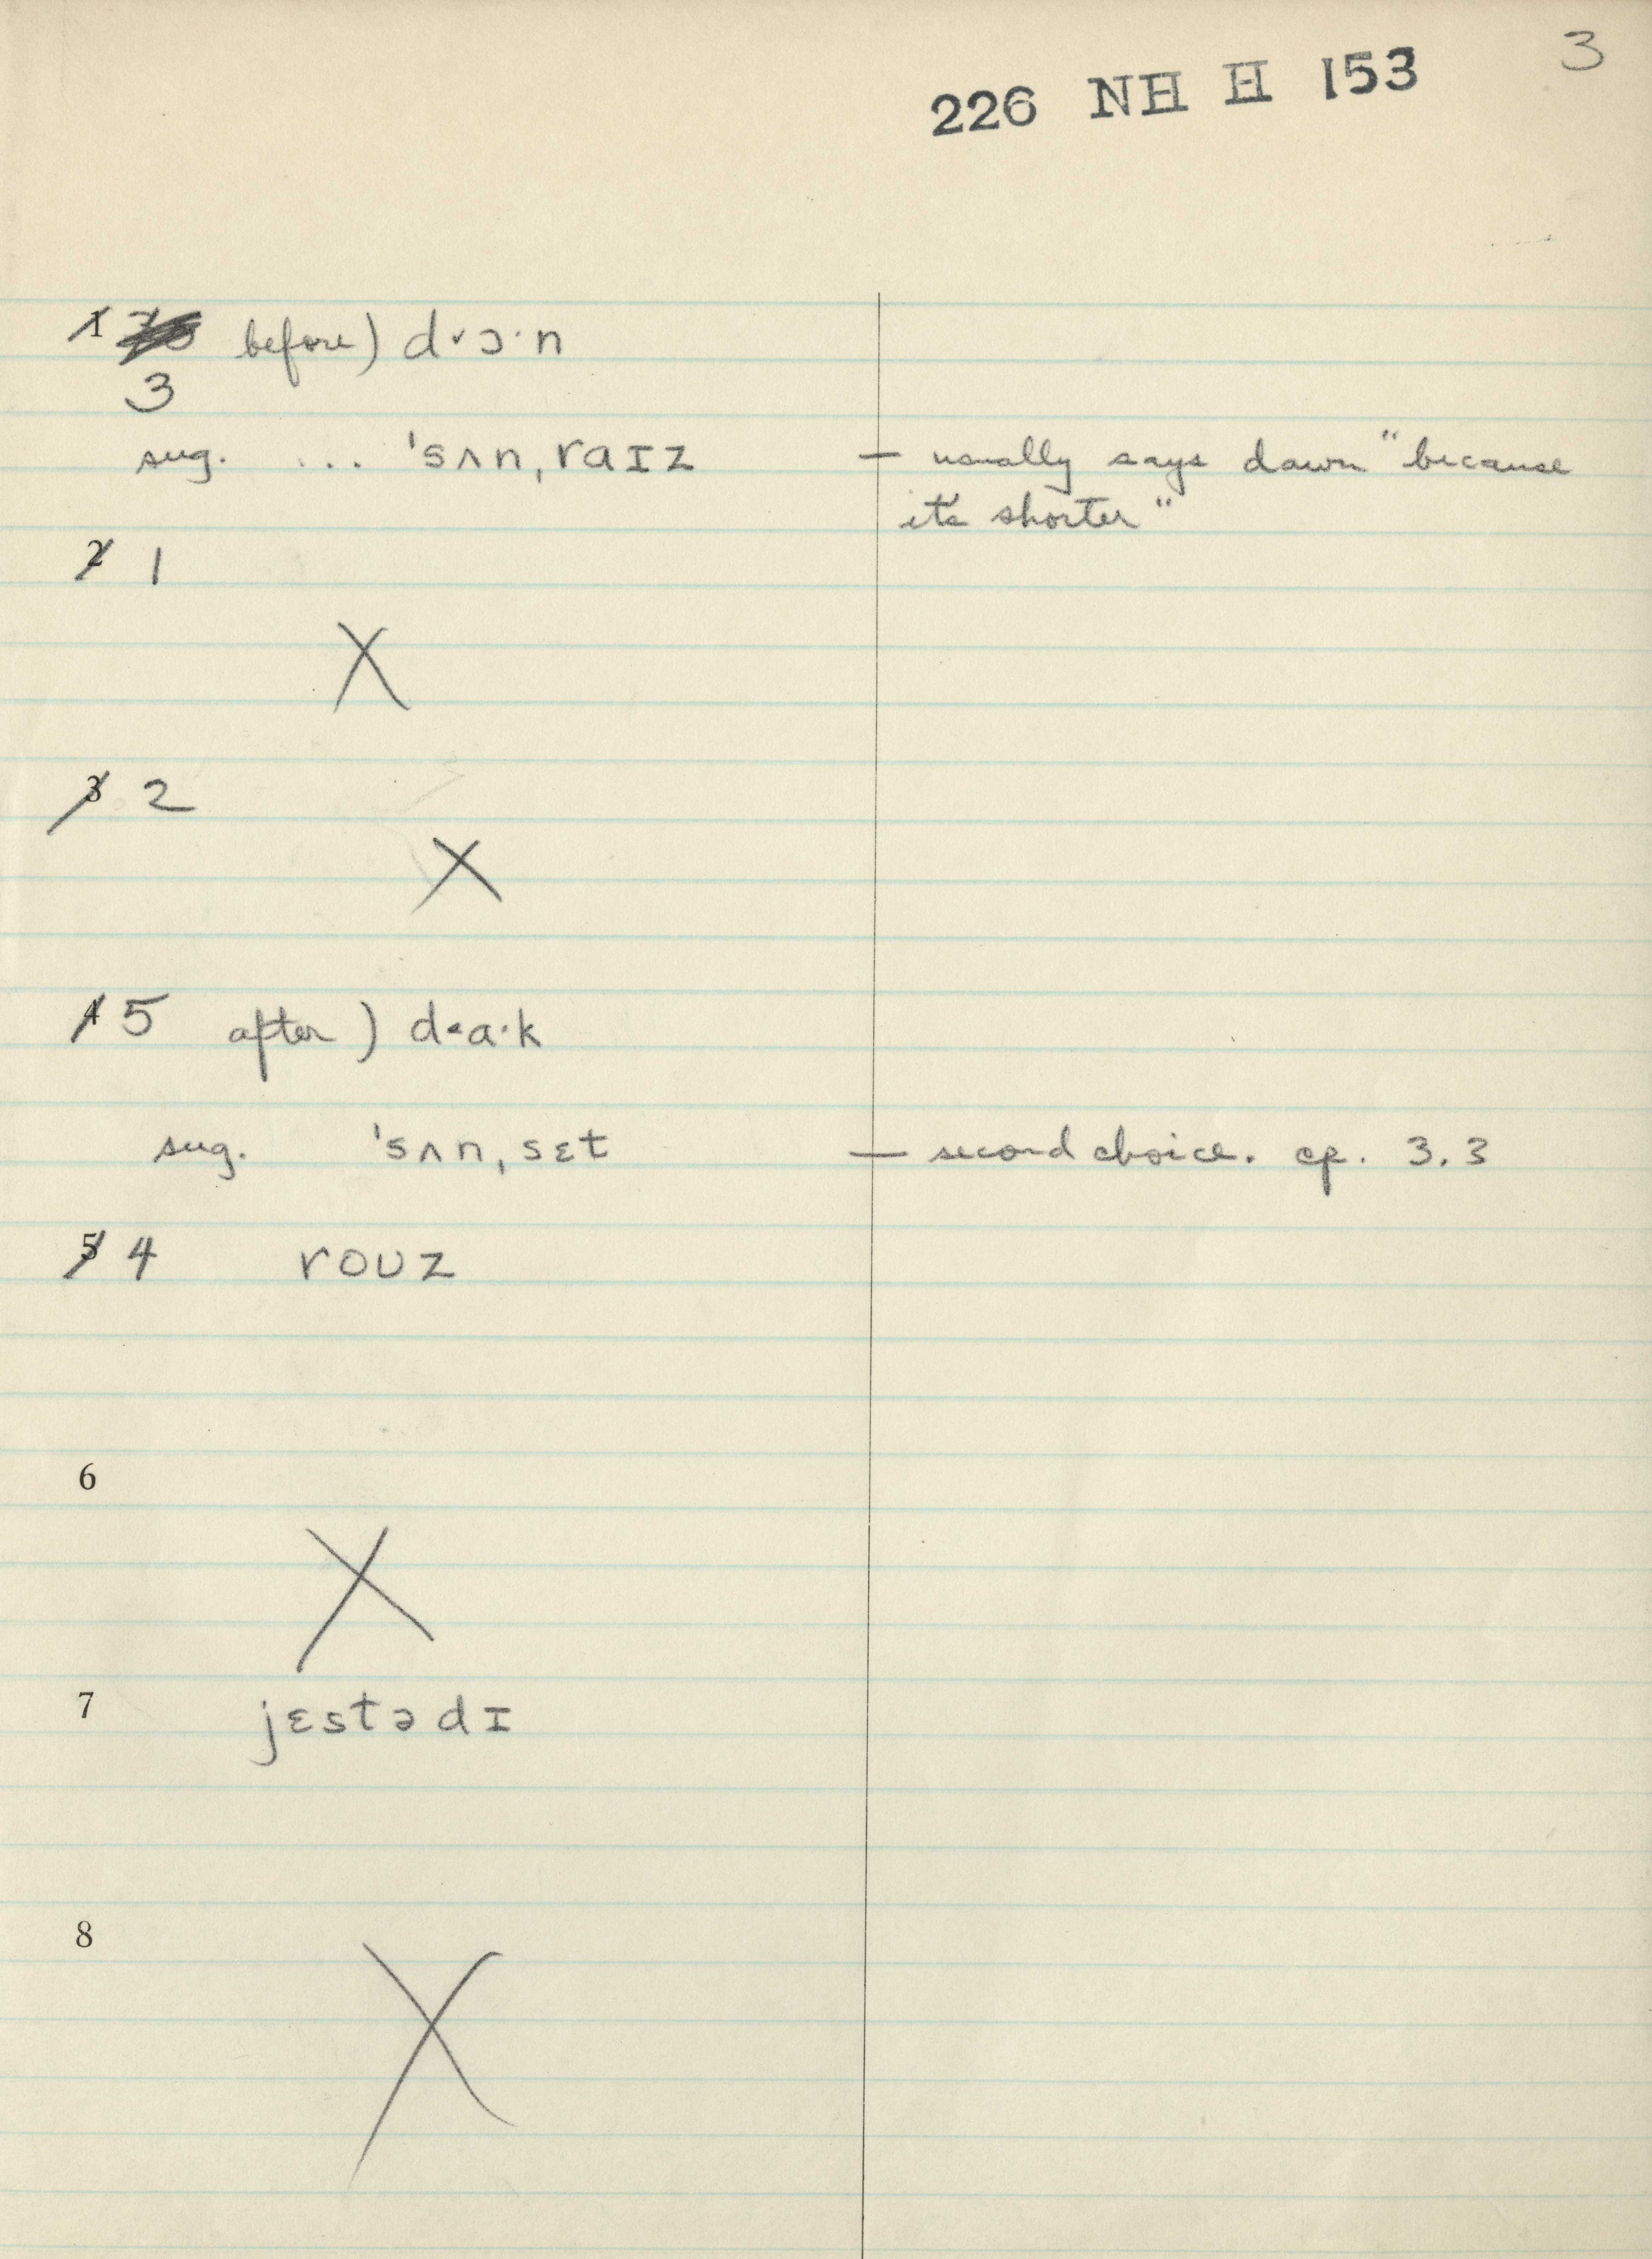 3
226 NH H 153
1 before) d˅ɔ·n
3
sug. ... ˈsʌnˌraɪz — usually says dawn "because
it's shorter"
2 1
X
3 2
X
4 5 after) d˂a·k
sug. ˈsʌnˌsɛt — second choice. cp. 3.3
5 4 roʊz
6
X
7 jɛstədɪ
8
X